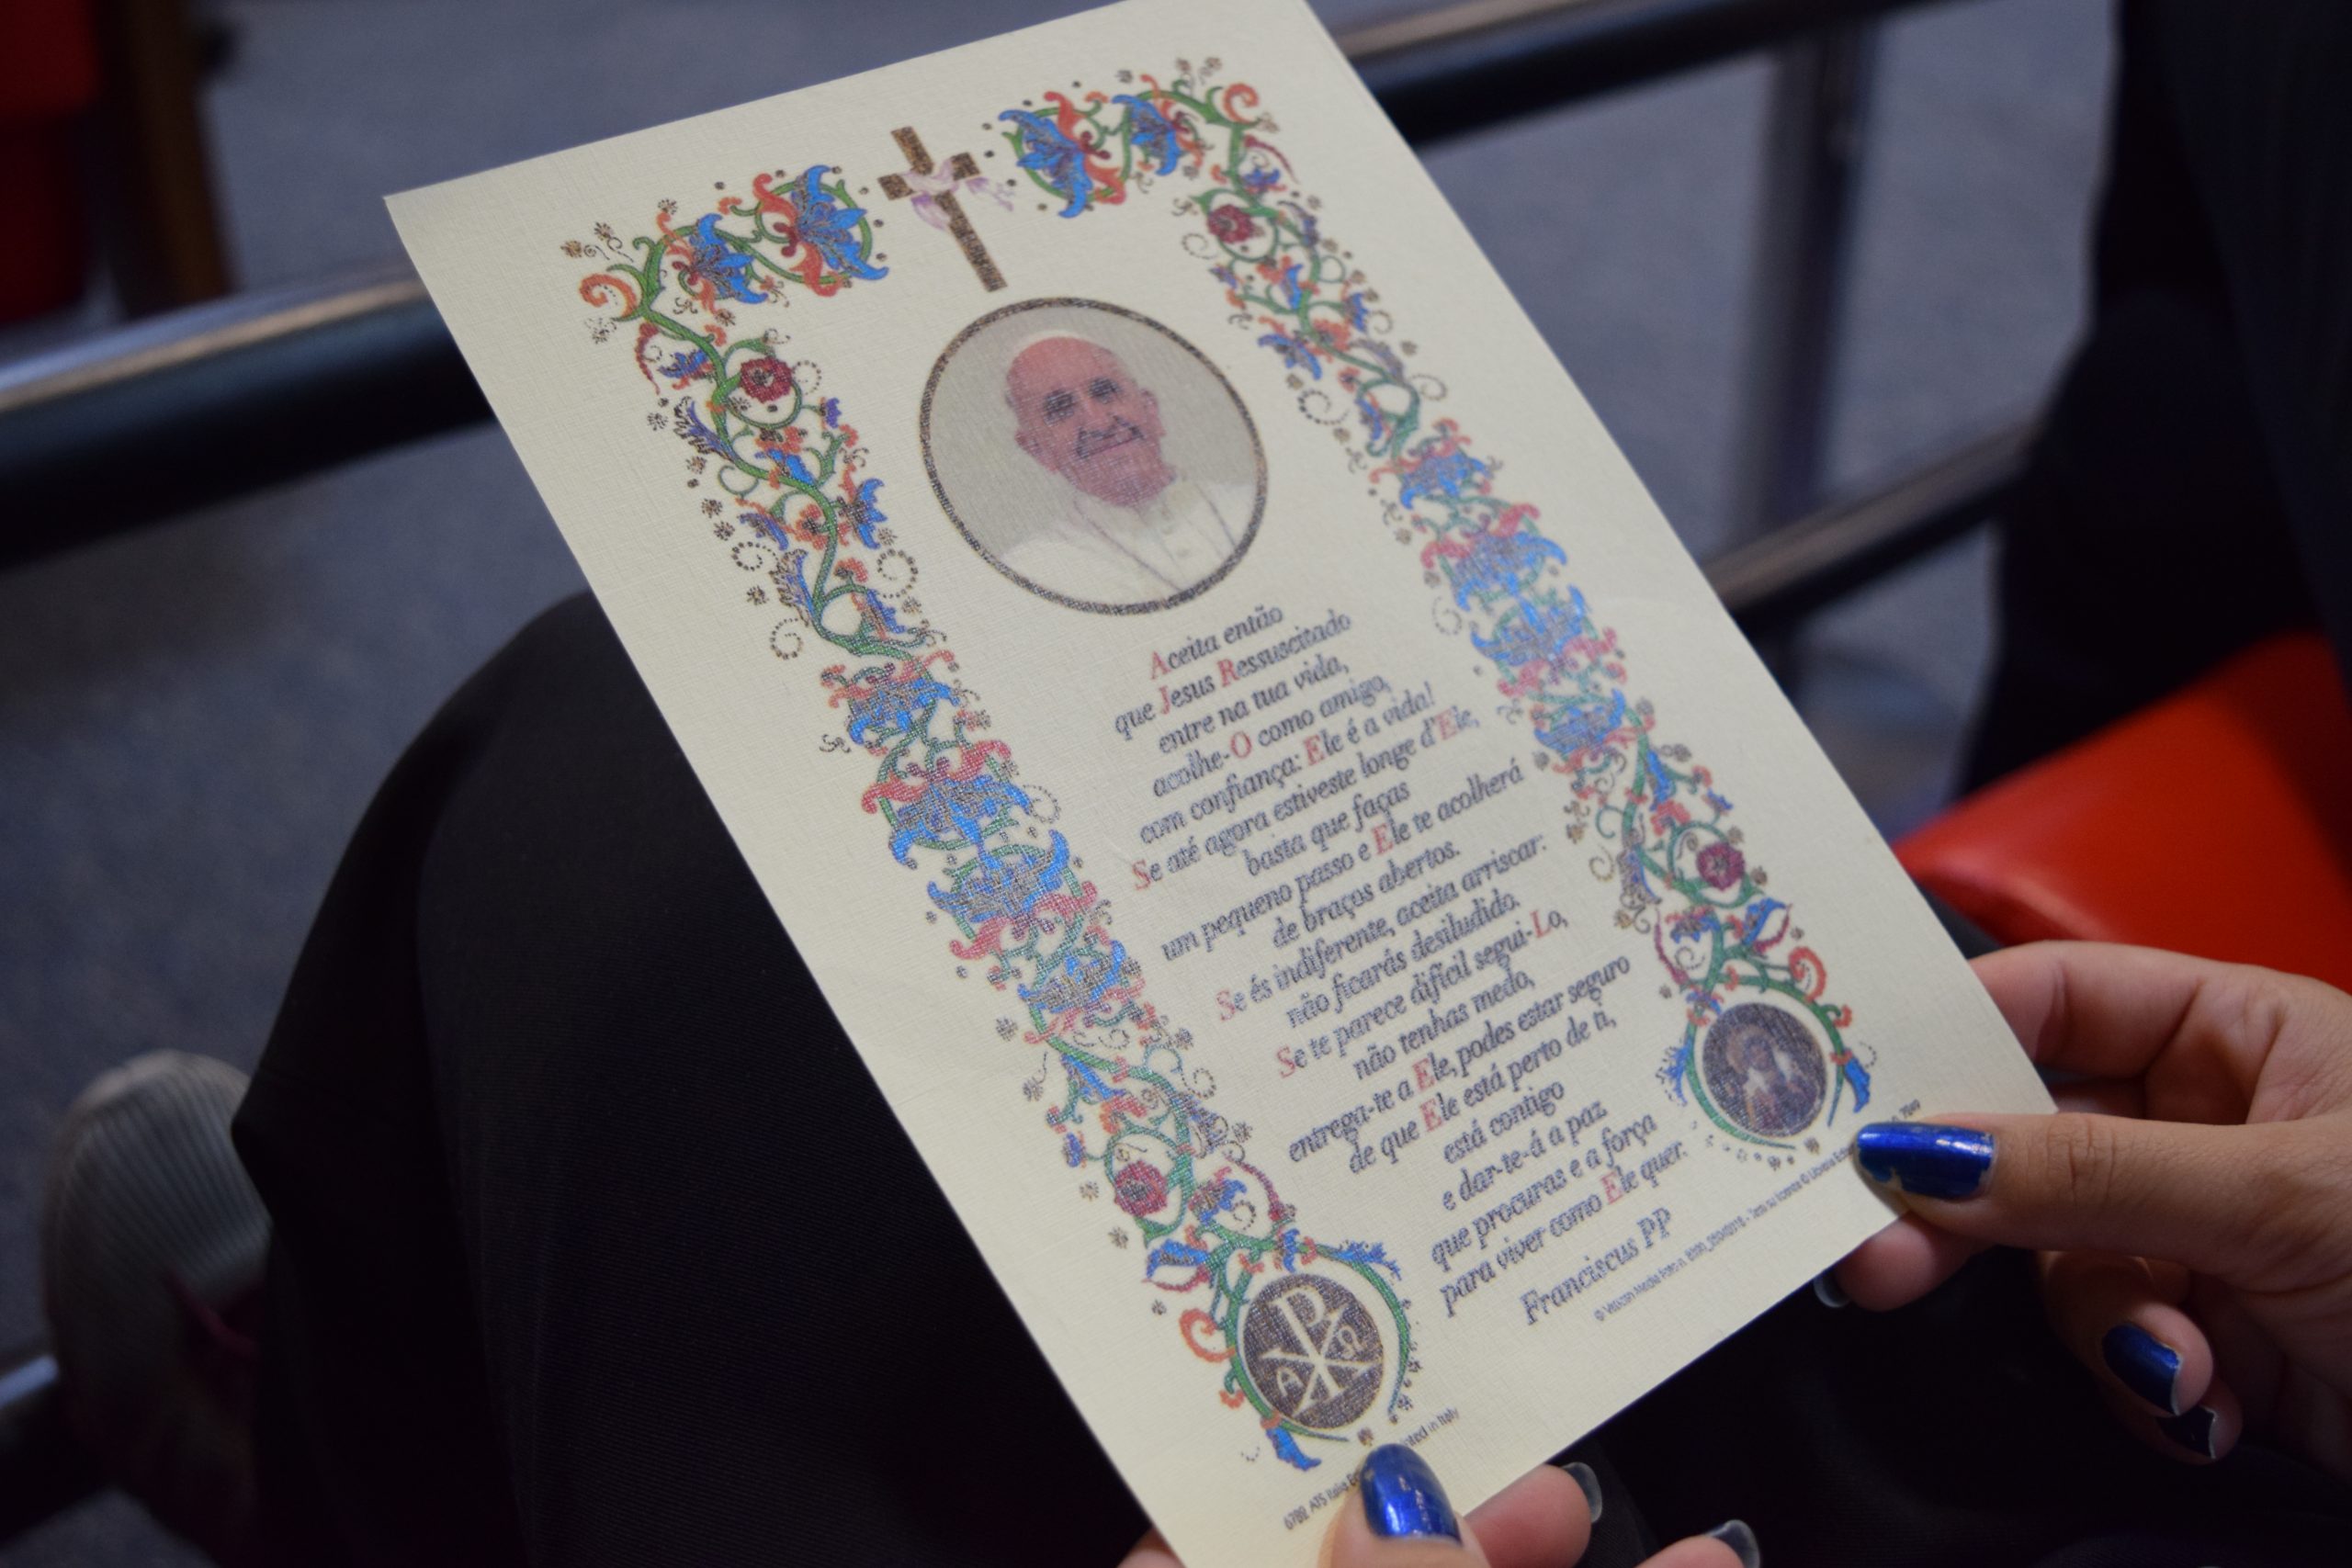 Aceita então
que Jesus Ressuscitado
entre na tua vida,
acolhe-O como amigo,
com confiança: Ele é a vida!
Se até agora estiveste longe d'Ele,
basta que faças
um pequeno passo e Ele te acolherá
de braços abertos.
Se és indiferente, aceita arriscar:
não ficarás desiludido.
Se te parece difícil segui-Lo,
não tenhas medo,
entrega-te a Ele, podes estar seguro
de que Ele está perto de ti,
está contigo
e dar-te-á a paz
que procuras e a força
para viver como Ele quer.
Franciscus PP
© Vatican Media Foto n. Testo su licenza © Libreria
P Α Ω
ATS Italia in Italy